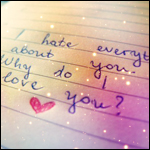 I hate everyt
about you.
Why do I
love you?